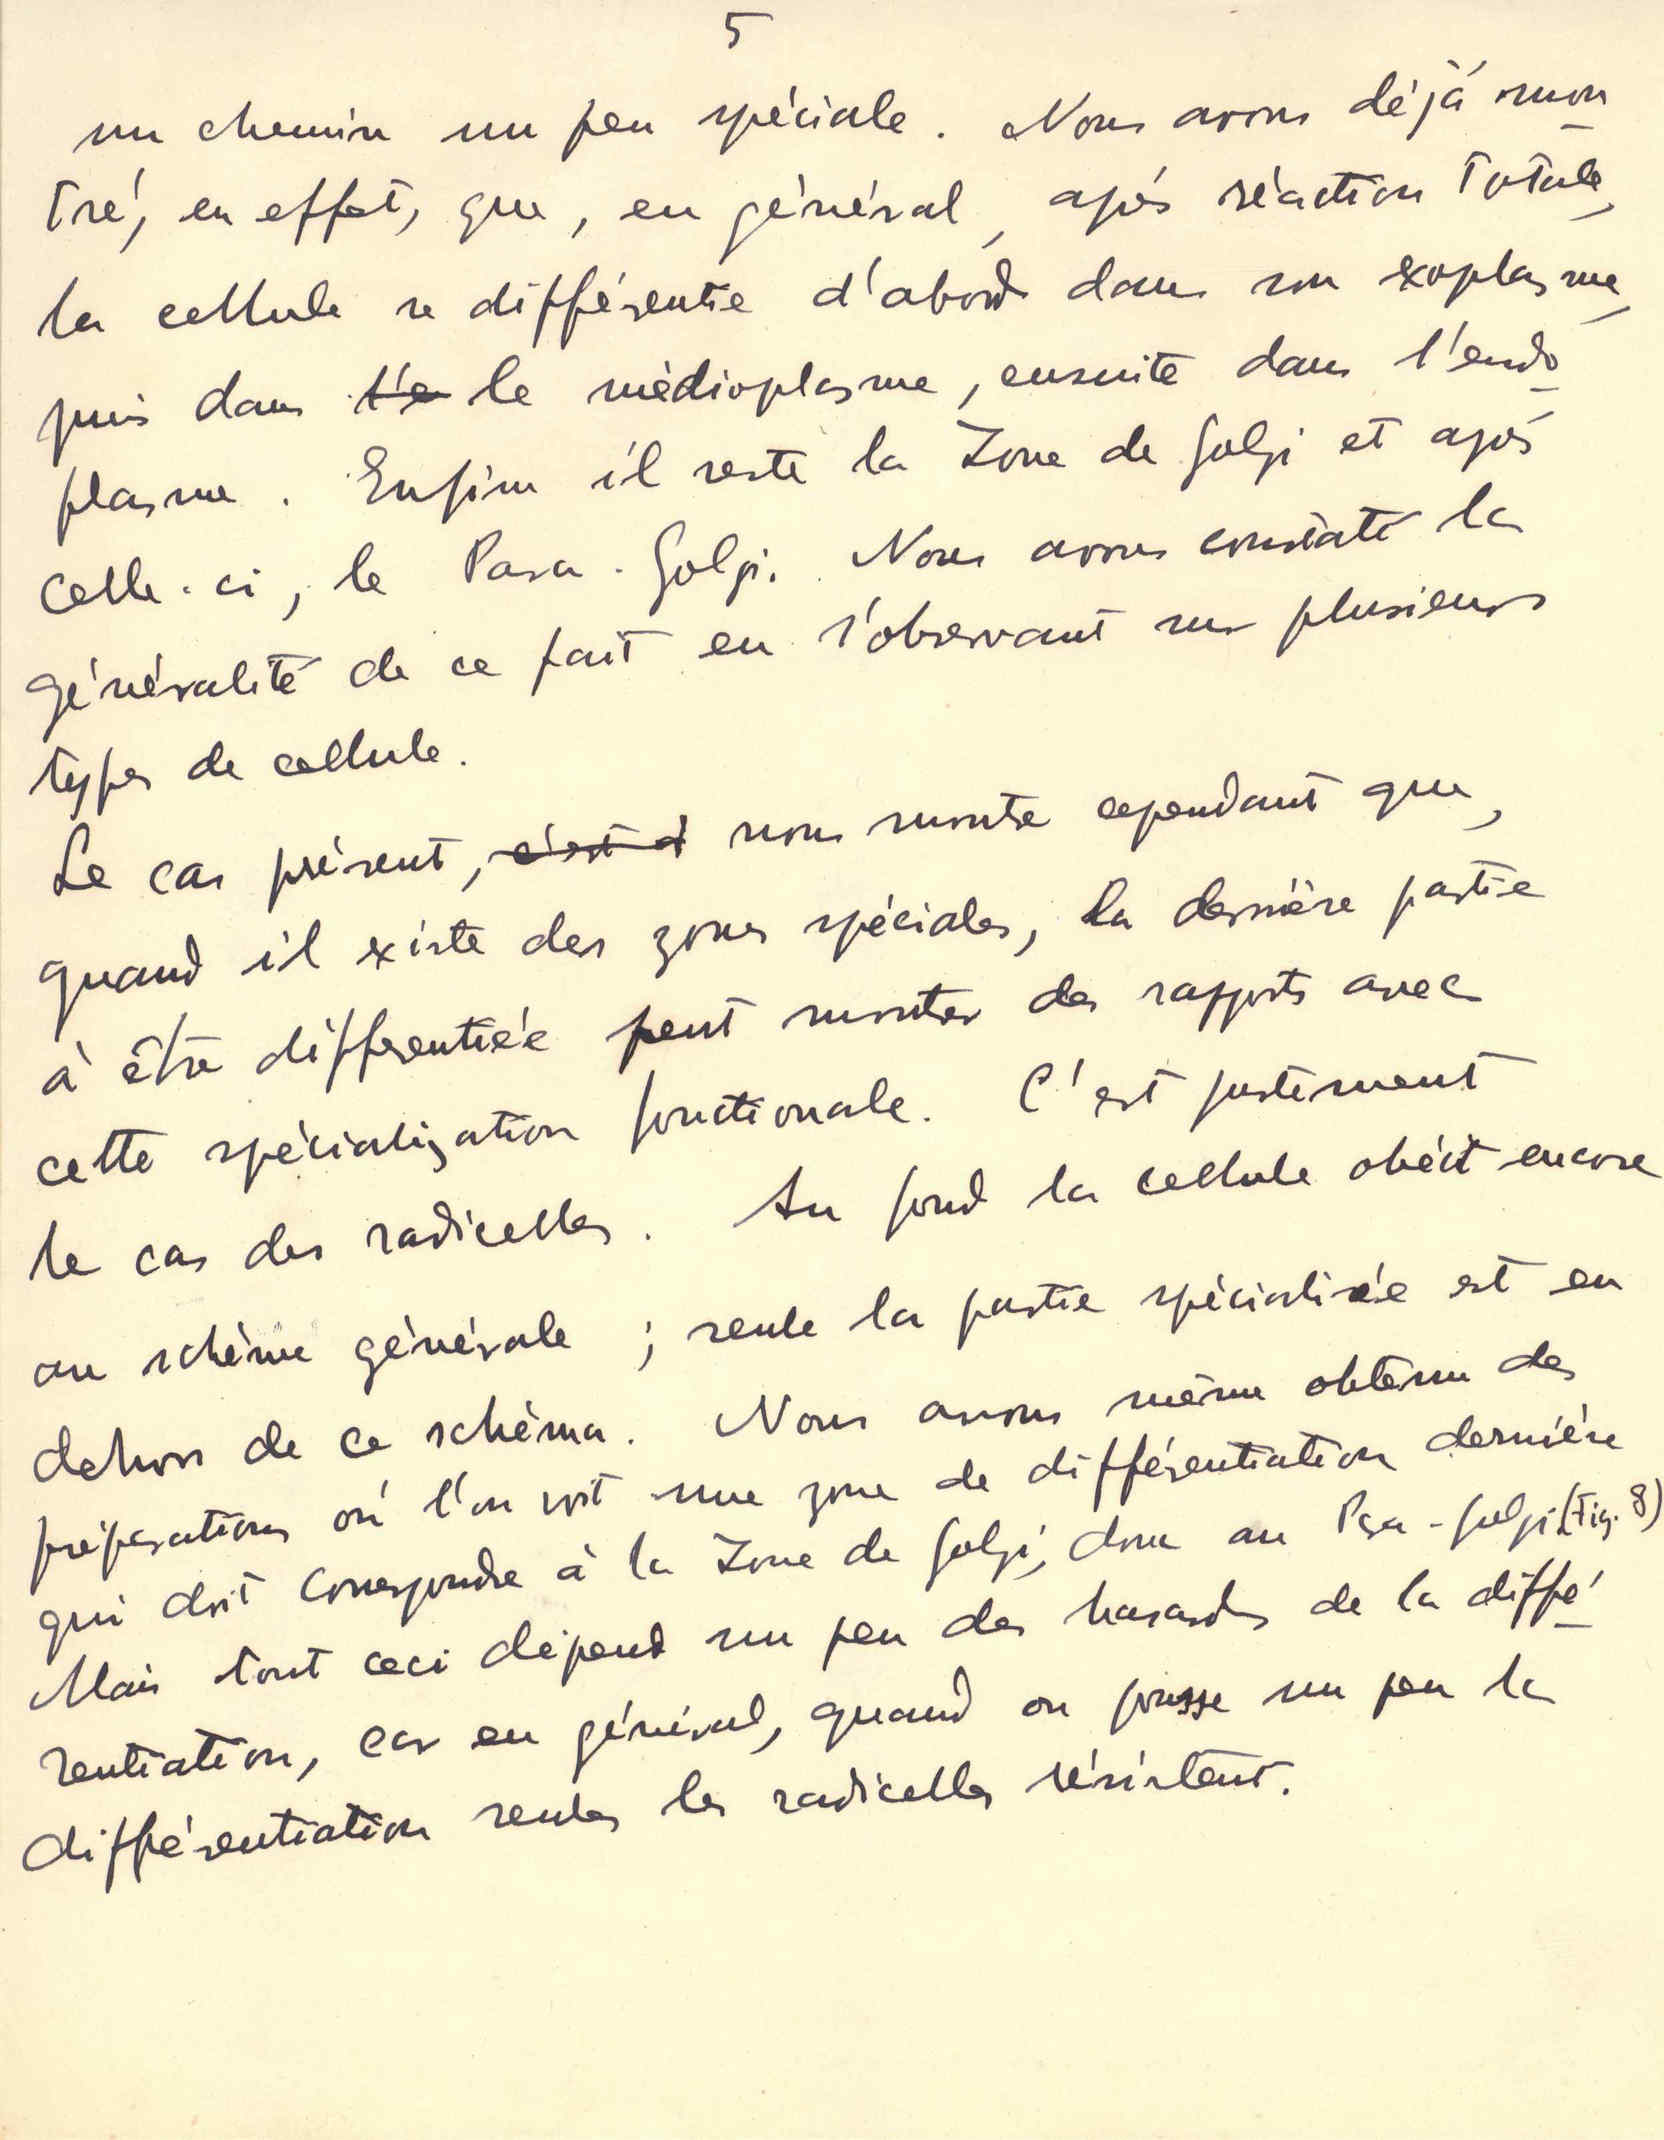 5
un chemin un peu spéciale. Nous avons déjà mon
tré, en effet, que, en général, après réaction totale,
la cellule se différentie d'abord dans son exoplasme,
puis dans l'e le médioplasme, ensuite dans l'endo
plasme. Enfim il reste la Zone de Golgi et après
celle-ci, le Para-Golgi. Nous avons constaté la
généralité de ce fait en l'observant sur plusieurs
types de cellule.
Le cas présent, c'est d nous montre cependant que,
quand il existe des zones spéciales, la dernière partie
à être differentiée peut montrer des rapports avec
cette spécialization fonctionale. C'est justement
le cas des radicelles. Au fond la cellule obéit encore
au schème générale; seule la partie spécialisée est en
dehors de ce schéma. Nous avons même obtenu des
préparations où l'on voit une zone de différentiation dernière
qui doit correspondre à la Zone de Golgi, donc au Para-Golgi. (Fig. 8)
Mais tout ceci dépend un peu des hasards de la diffé
rentiation, car en général, quand on pousse un peu la
différentiation seules les radicelles résistent.